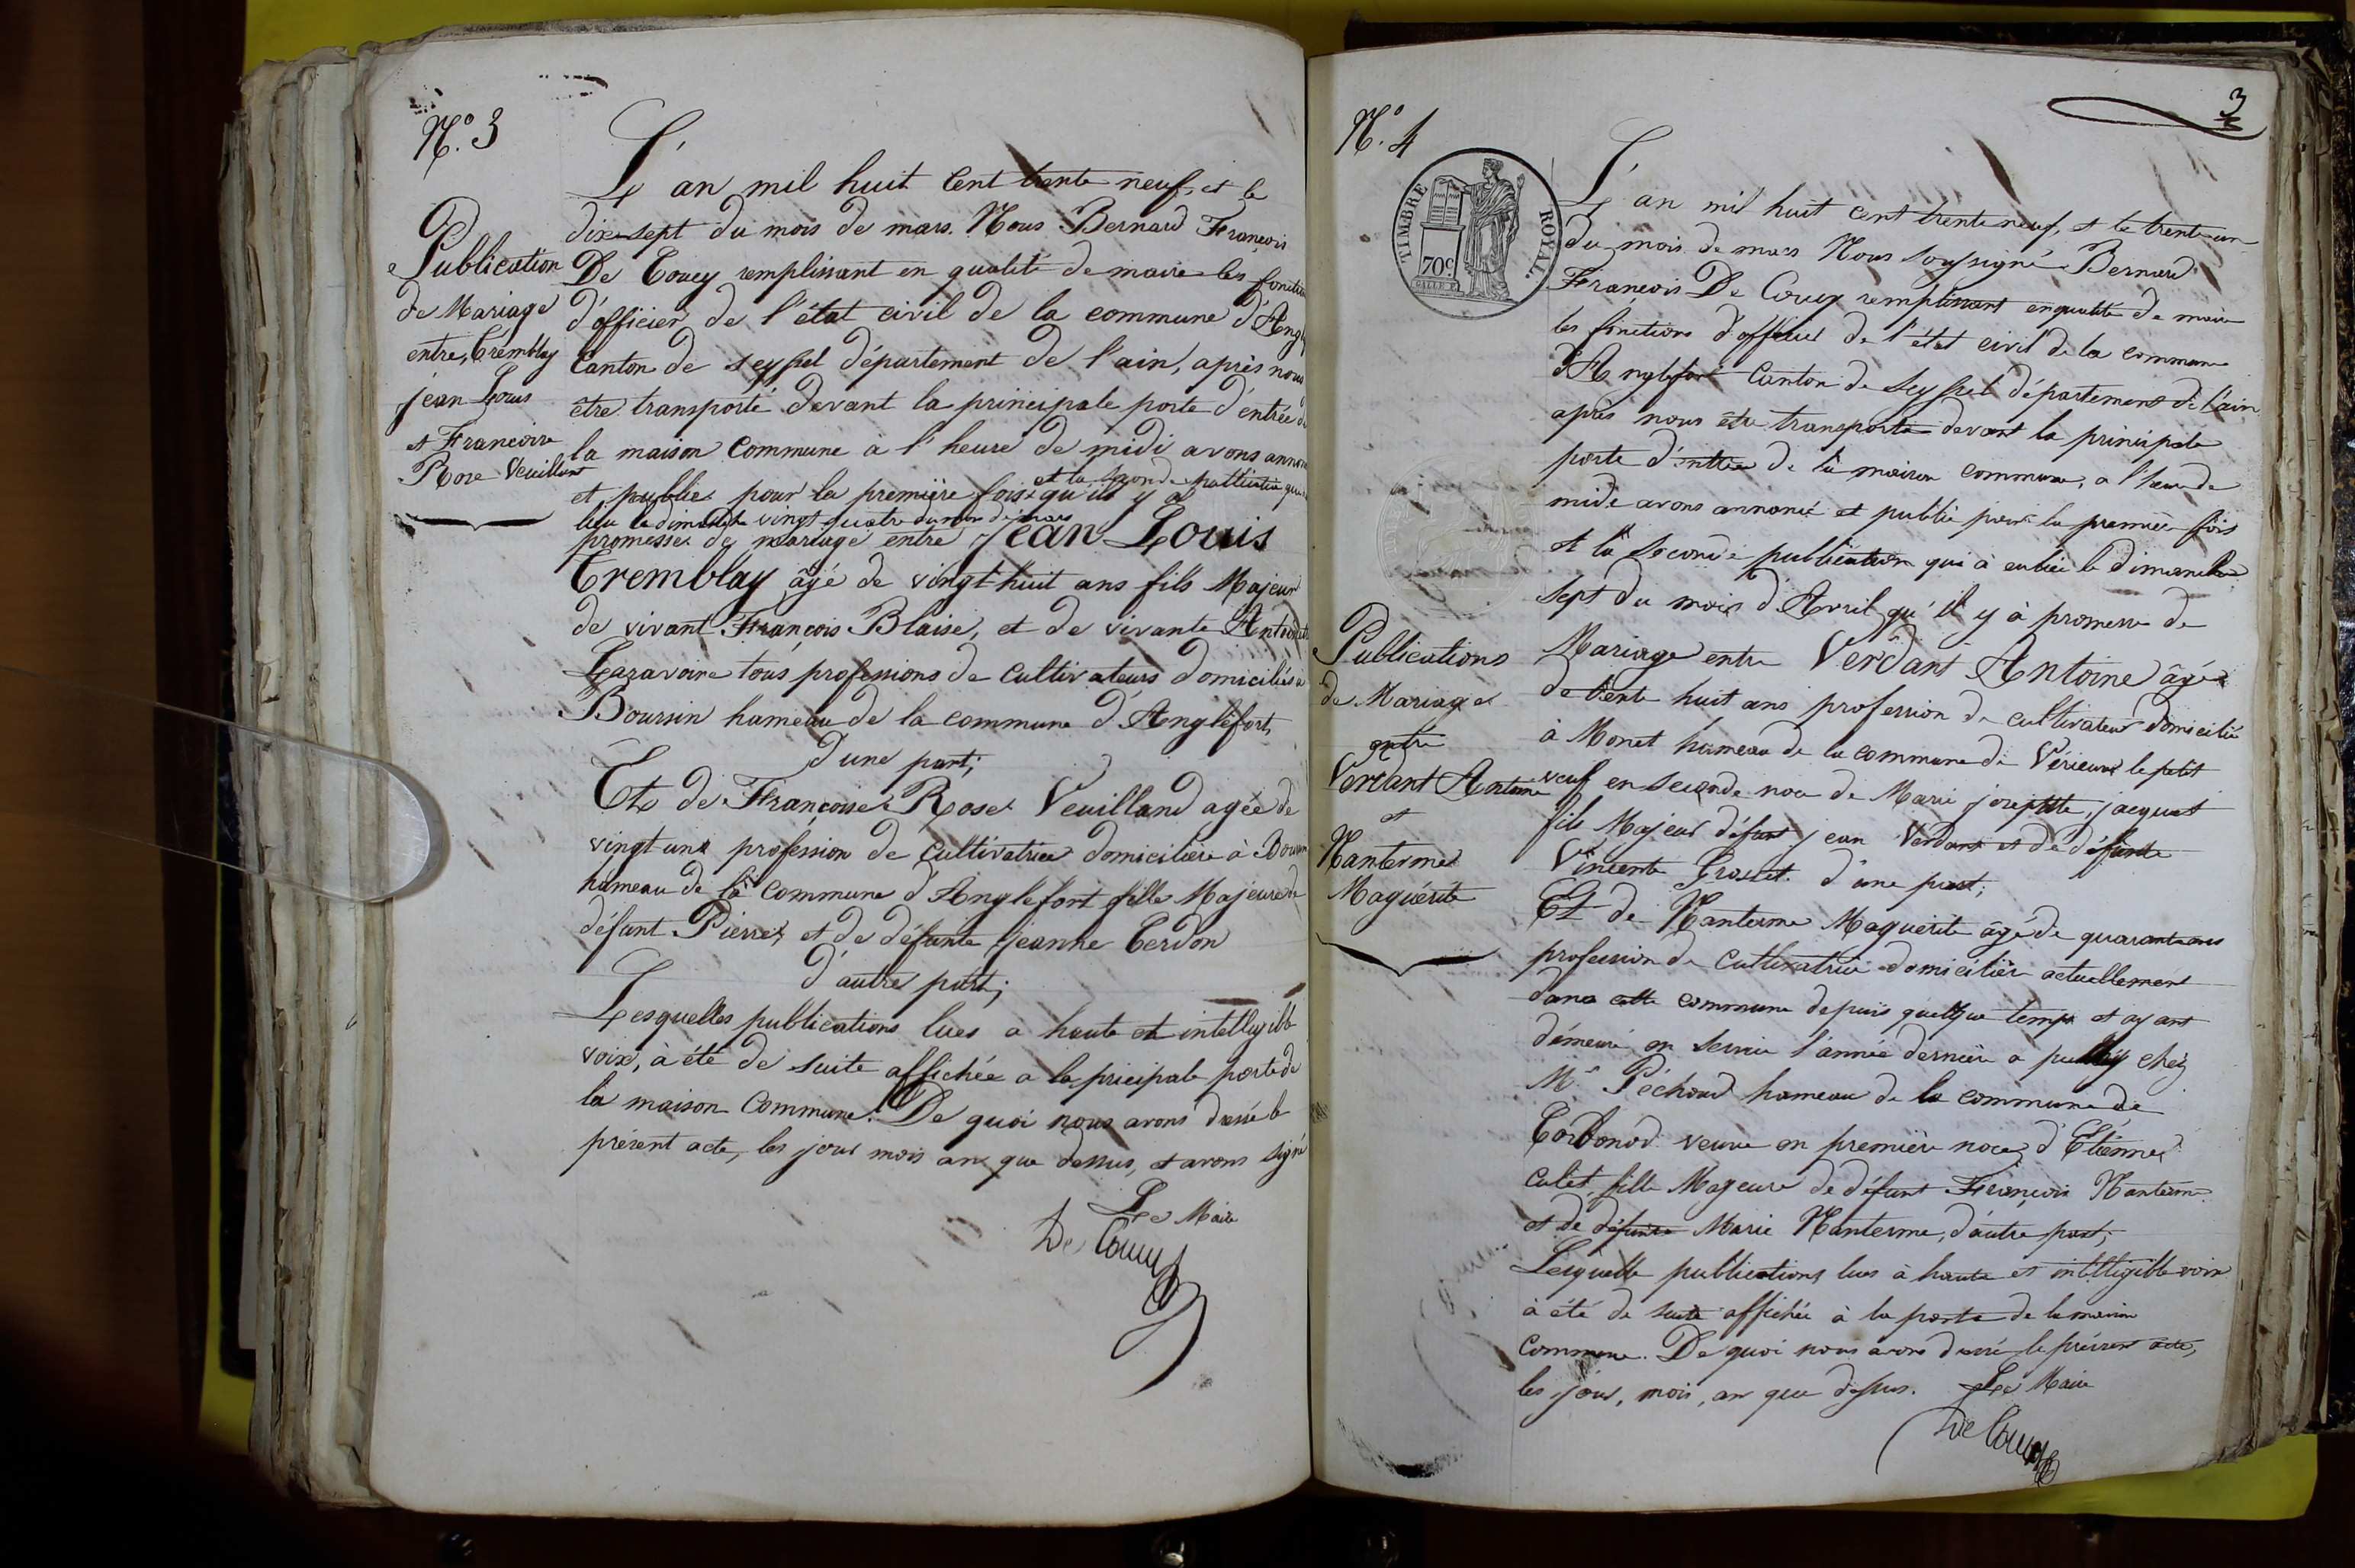 N.° 3
Publication
de Mariage
entre, Tremblay
jean Louis
et Francoise
Rose Veuilland
L'an mil huit Cent trente neuf, et le
dix-sept du mois de mars. Nous Bernard François
De Coucy remplissant en qualité de maire les fonctions
d'officier de l'état civil de la commune d'Angle
Canton de seyssel département de l'ain, après nous
être transporté devant la principale porte d'entrée de
la maison Commune à l'heure de midi avons annoncé
et la seconde publication qui a
et publié pour la première fois qu'il y a
lieu le dimanche vingt quatre du mois de mars
promesse de mariage entre Jean Louis
Tremblay âgé de vingt huit ans fils Majeur
de vivant François Blaise, et de vivante
Lazavoire tous professions de Cultivateurs domiciliés à
Boursin hameau de la commune d'Anglefort,
d'une part;
Et de Françoise Rose Veuilland agée de
vingt un profession de Cultivatrice domicilière à Boursin
hameau de la Commune d'Anglefort fille Majeure de
défunt Pierre, et de défunte jeanne Cerdon
d'autre part;
Lesquelles publications lues a haute et intelligible
voix, à été de suite affichée a la pricipale porte de
la maison Commune. De quoi nous avons dressé le
présent acte, les jour mois an que dessus, et avons signé
Le Maire
De Coucy
3
N.° 4
TIMBRE ROYAL.
70c
Publications
de Mariage
entre
Verdant Antoine
et
Nanterme
Maguérite
L'an mil huit cent trente neuf, et le trente-un
du mois de mars Nous soussigné Bernard
François De Coucy remplissant en qualité de maire
les fonctions d'officier de l'état civil de la commune
d'Anglefort Canton de Seyssel département de l'ain,
après nous être transporté devant la principale
porte d'entrée de la maison commune, a l'heure de
midi avons annoncé et publié pour la première fois
et la seconde publication qui à eu lieu le dimanche
sept du mois d'Avril qu'il y à promesse de
Mariage entre Verdant Antoine âgé
de trente huit ans profession de cultivateur domicilié
à Monet hameau de la commune de Virieux le petit
veuf en seconde noce de Marie josephte, jacquet
fils Majeur défunt jean Verdant et de défunte
Vincente Grostet d'une part;
Et de Nanterme Maguérite âgé de quarante ans
profession de Cultivatrice domicilière actuellement
dans cette commune depuis quelque temps et ayant
démeuré en service l'année dernière a chez
Mr Péchoud hameau de la commune de
Corbonod veuve en première noce d'Étienne
Culet, fille Majeure de défunt François Nanterme
et de défunte Marie Nanterme, d'autre part,
Lesquelle publications lues à haute et intelligible voix
à été de suite affichée à la porte de la maison
Commune. De quoi nous avons dressé le présent acte,
les jour, mois, an que dessus. Le Maire
De Coucy